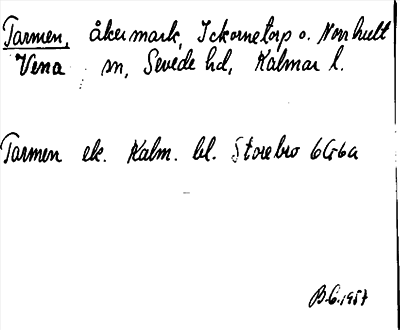 Tarmen, åkermark, Ickornetorp o. Norrhult
Vena sn, Sevede hd, Kalmar l.
Tarmen ek. Kalm. bl. Storebro 6G6a
B.G. 1957